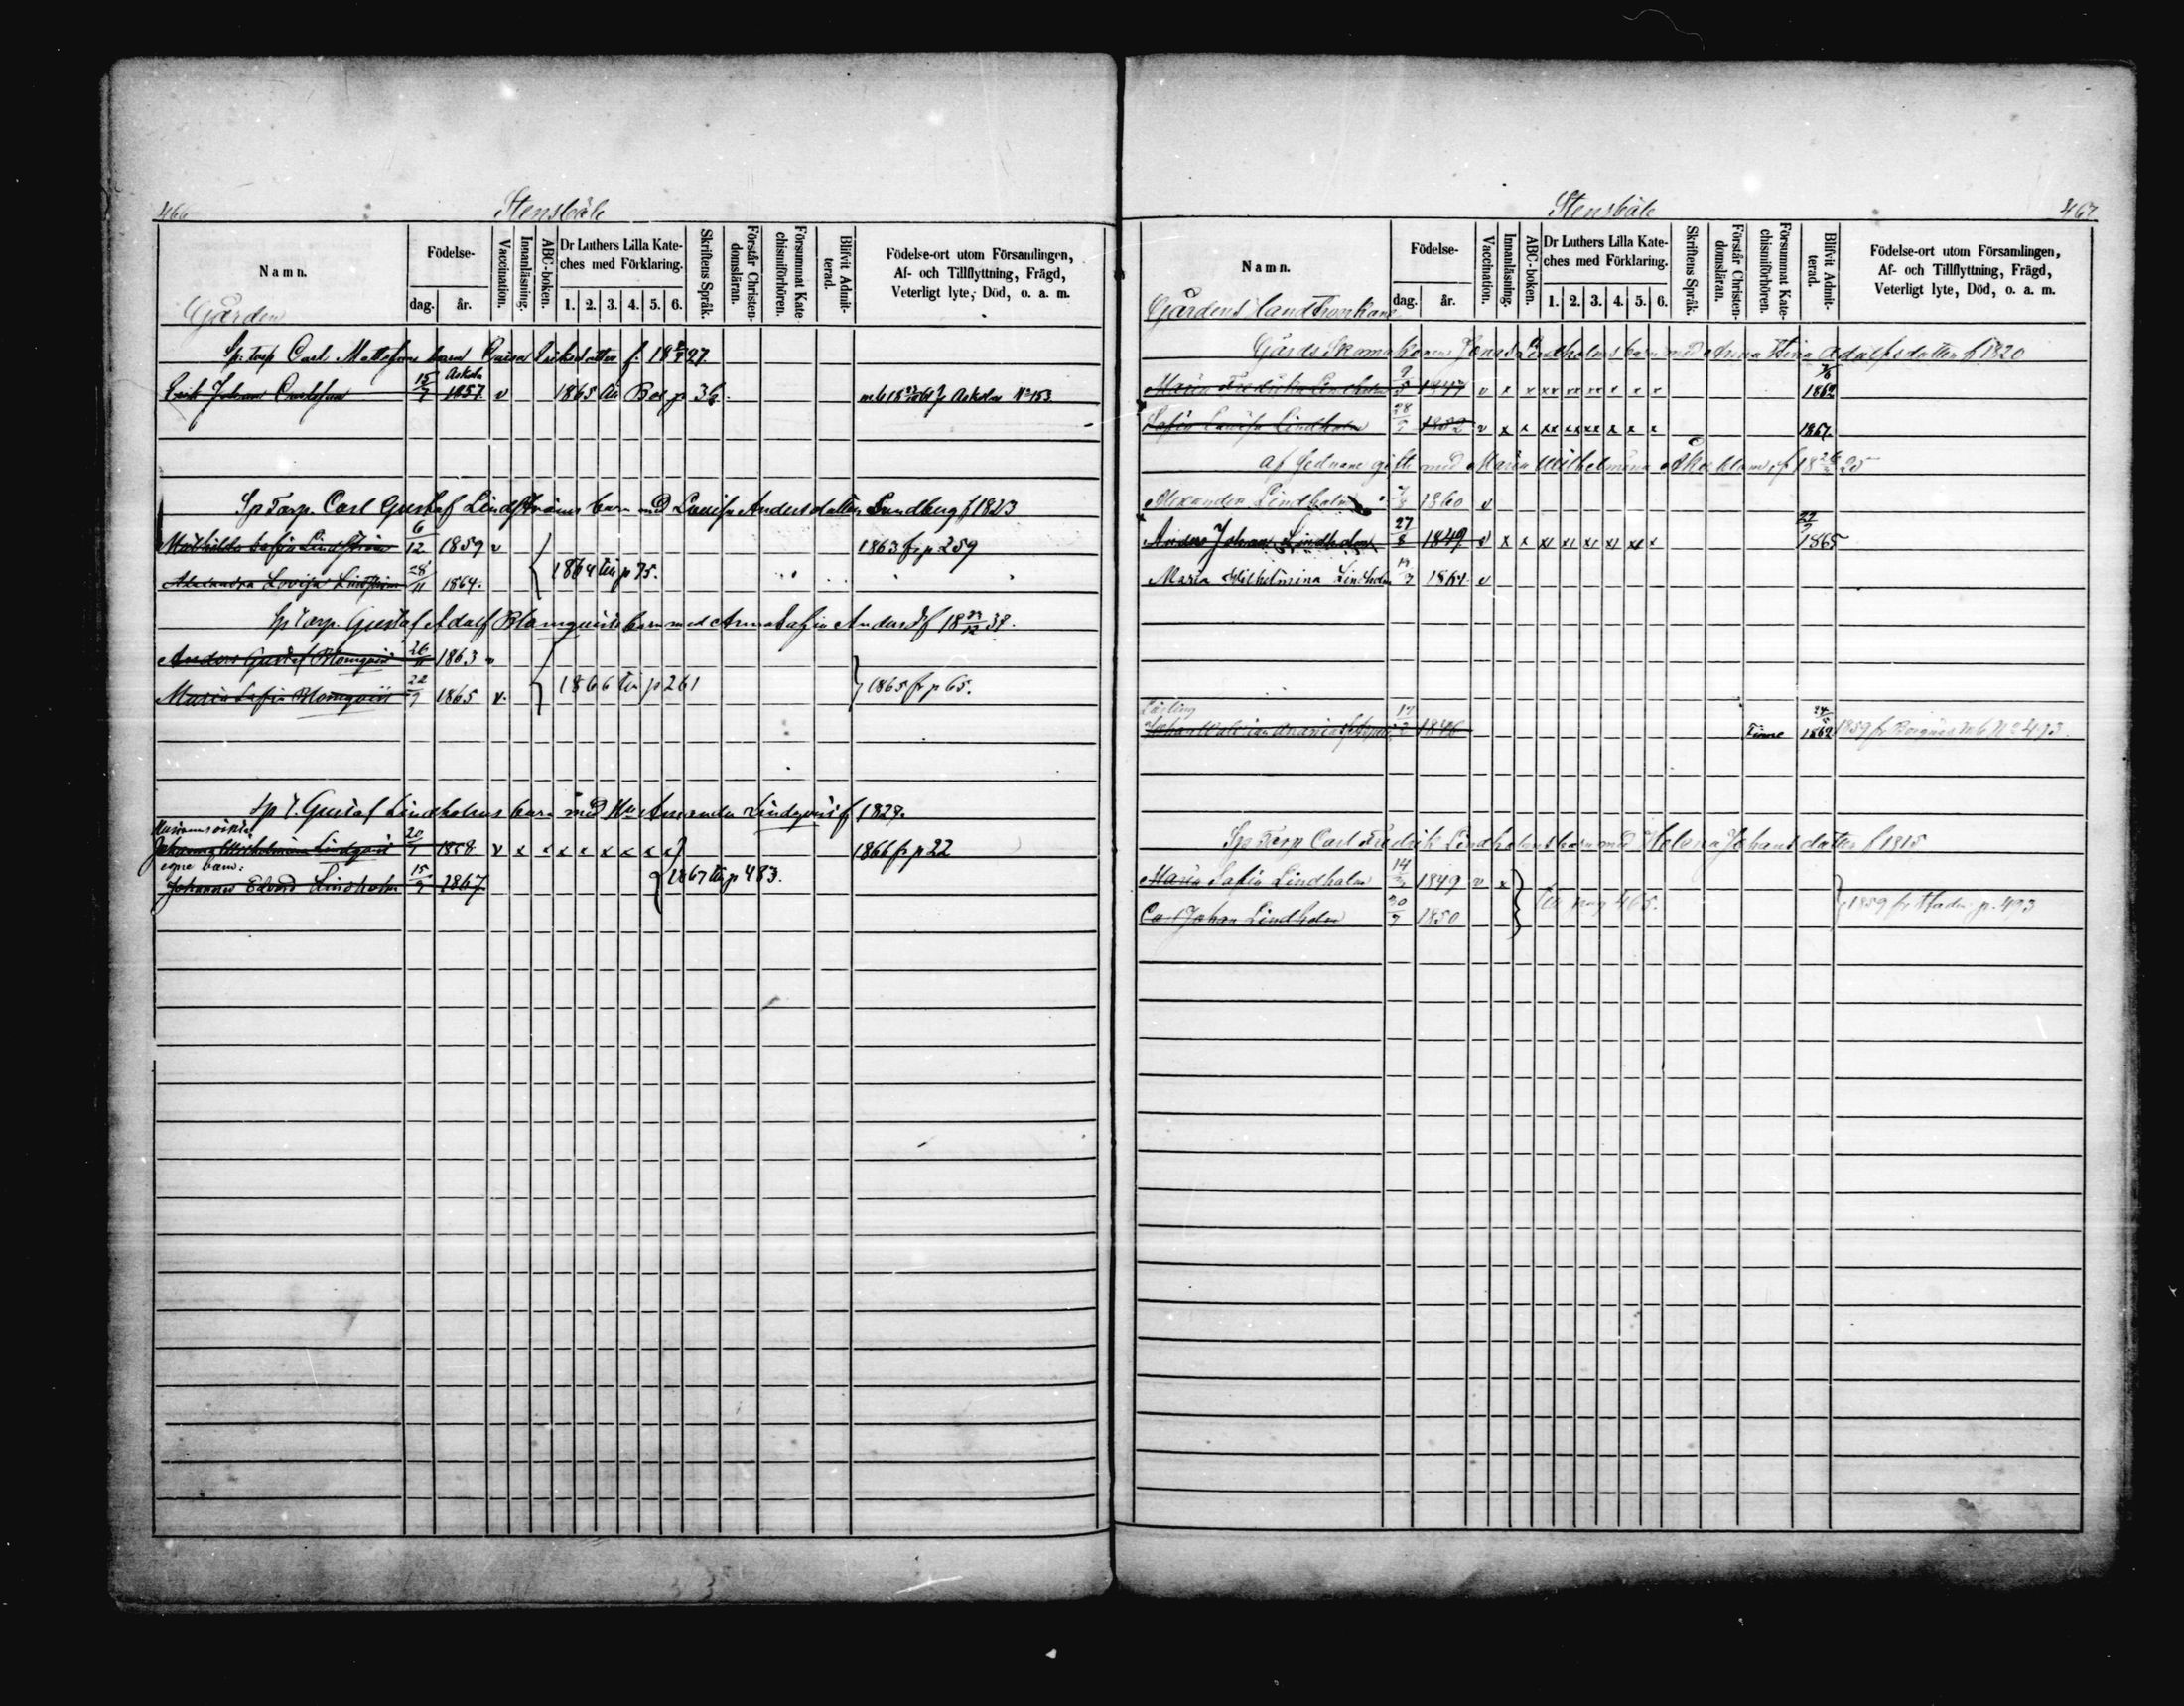 466 Stensböle
Namn.
Födelse-
dag. år.
Vaccination.
Innanläsning.
ABC-boken.
Dr Luthers Lilla Kate-
ches med Förklaring.
1. 2. 3. 4. 5. 6.
Skriftens Språk.
Förstår Christen-
domsläran.
Försummat Kate-
chismiförhören.
Blifvit Admit-
terad.
Födelse-ort utom Församlingen,
Af- och Tillflyttning, Frägd,
Veterligt lyte, Död, o. a. m.
Gården
Sp. torp Carl Mattssons barn Eriksdotter f. 18 27.
Askola
Erik Johan Carlsson 15/7 1857 v 1865 till Box p 36. Askola No 153
Sp Torp. Carl Gustaf Lindströms barn med Lovisa Andersdotter Sundberg f 1823
Mathilda Sofia Lindström 6/12 1859 v 1863 fr p 259
1864 till p 75.
Alexandra Lovisa Lindström 28/11 1864.
Sp Torp. Gustaf Adolf Blomqvists barn med Anna Sofia Andersd f 18 27/12 38.
Anders Gustaf Blomqvist 26/11 1863 v
1866 till p 261 1865 fr p 65.
Maria Sofia Blomqvist 22/9 1865 v.
Sp T. Gustaf Lindholms barn med Amanda Lindqvist f 1827.
Johanna Wilhelmina Lindqvist 20/7 1858 v x x x x x x x x 1866 fr p 22
egne barn:
1867 till p 483.
Johannes Edvard Lindholm 15/9 1867
Stensböle 467
Namn.
Födelse-
dag. år.
Vaccination.
Innanläsning.
ABC-boken.
Dr Luthers Lilla Kate-
ches med Förklaring.
1. 2. 3. 4. 5. 6.
Skriftens Språk.
Förstår Christen-
domsläran.
Försummat Kate-
chismiförhören.
Blifvit Admit-
terad.
Födelse-ort utom Församlingen,
Af- och Tillflyttning, Frägd,
Veterligt lyte, Död, o. a. m.
Gårdens
Gårds Skomakarens Jonas Lindholms barn med Anna Stina Adolfsdotter f 1820
Maria Fredrika Lindholm 9/5 1847 v x x xx xx xx x x x 1862
Sofia Lovisa Lindholm 28/9 1852 v x x xx xx xx x x x 1867.
gift med Maria Wilhelmina
Alexander Lindholm 1860 v
Anders Johan Lindholm 27/8 1849 v x x x1 x1 x1 x1 x1 x 1865
Maria Wilhelmina Lindholm 1864 v
Lärling
Johan 17/2 1846 Finne 1862 1859 fr Borgnäs No 493.
Sp Torp Carl Fredrik Lindholms barn med Helena Johansdotter f 1815
Maria Sofia Lindholm 14/3 1849 v x
till pag 465. 1859 fr p. 493
Carl Johan Lindholm 30/9 1850